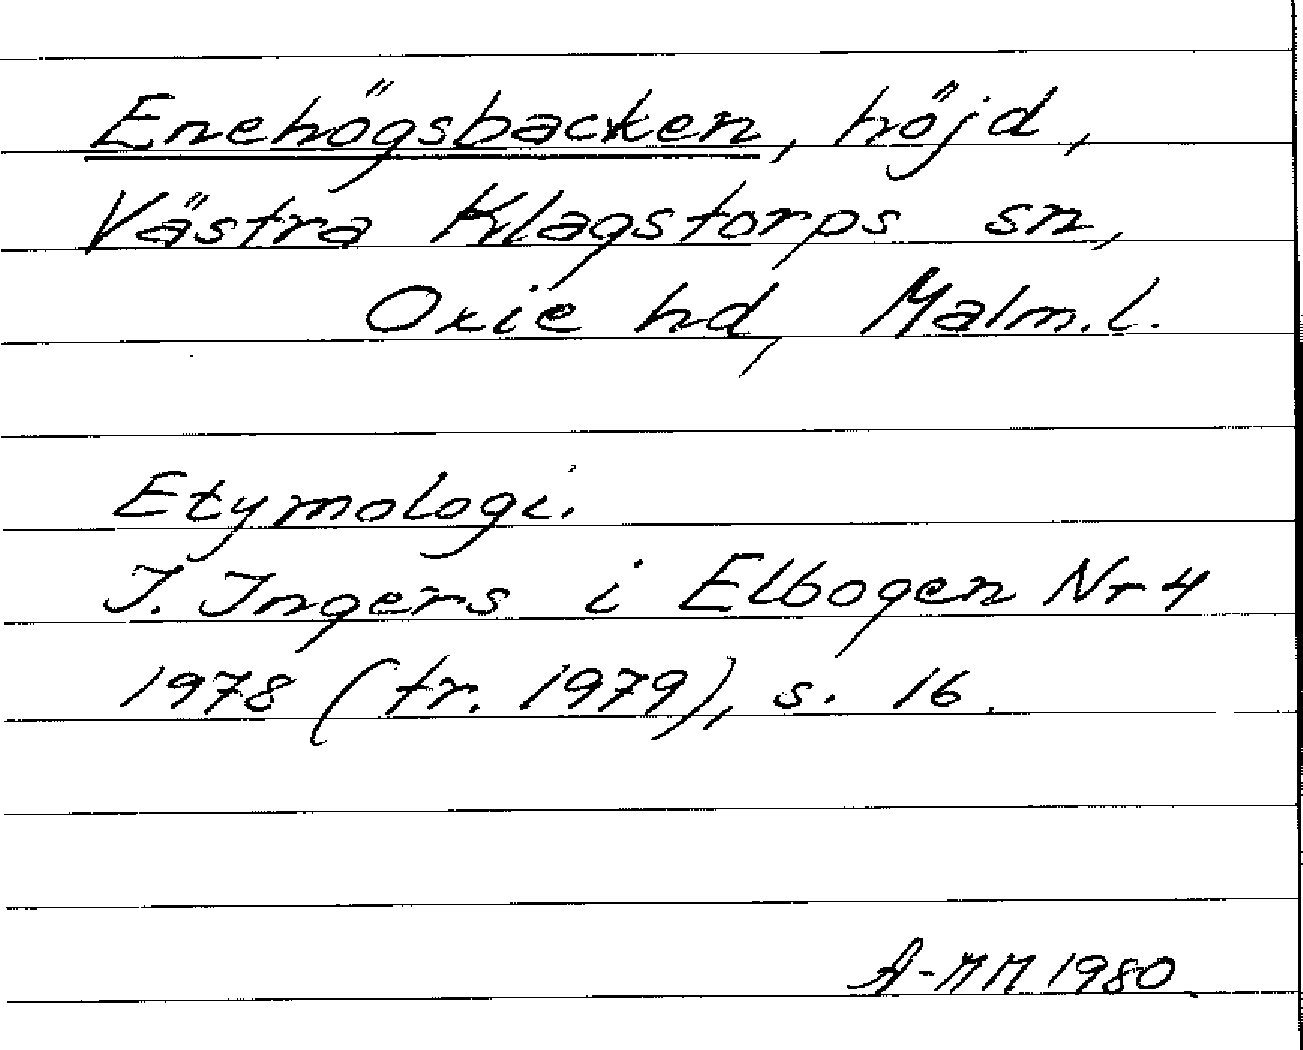 Enehögsbacken, höjd,
Västra Klagstorps sn,
Oxie hd, Malm.l.
Etymologi.
I. Ingers i Elbogen Nr 4
1978 (tr. 1979), s. 16.
A-MM 1980.